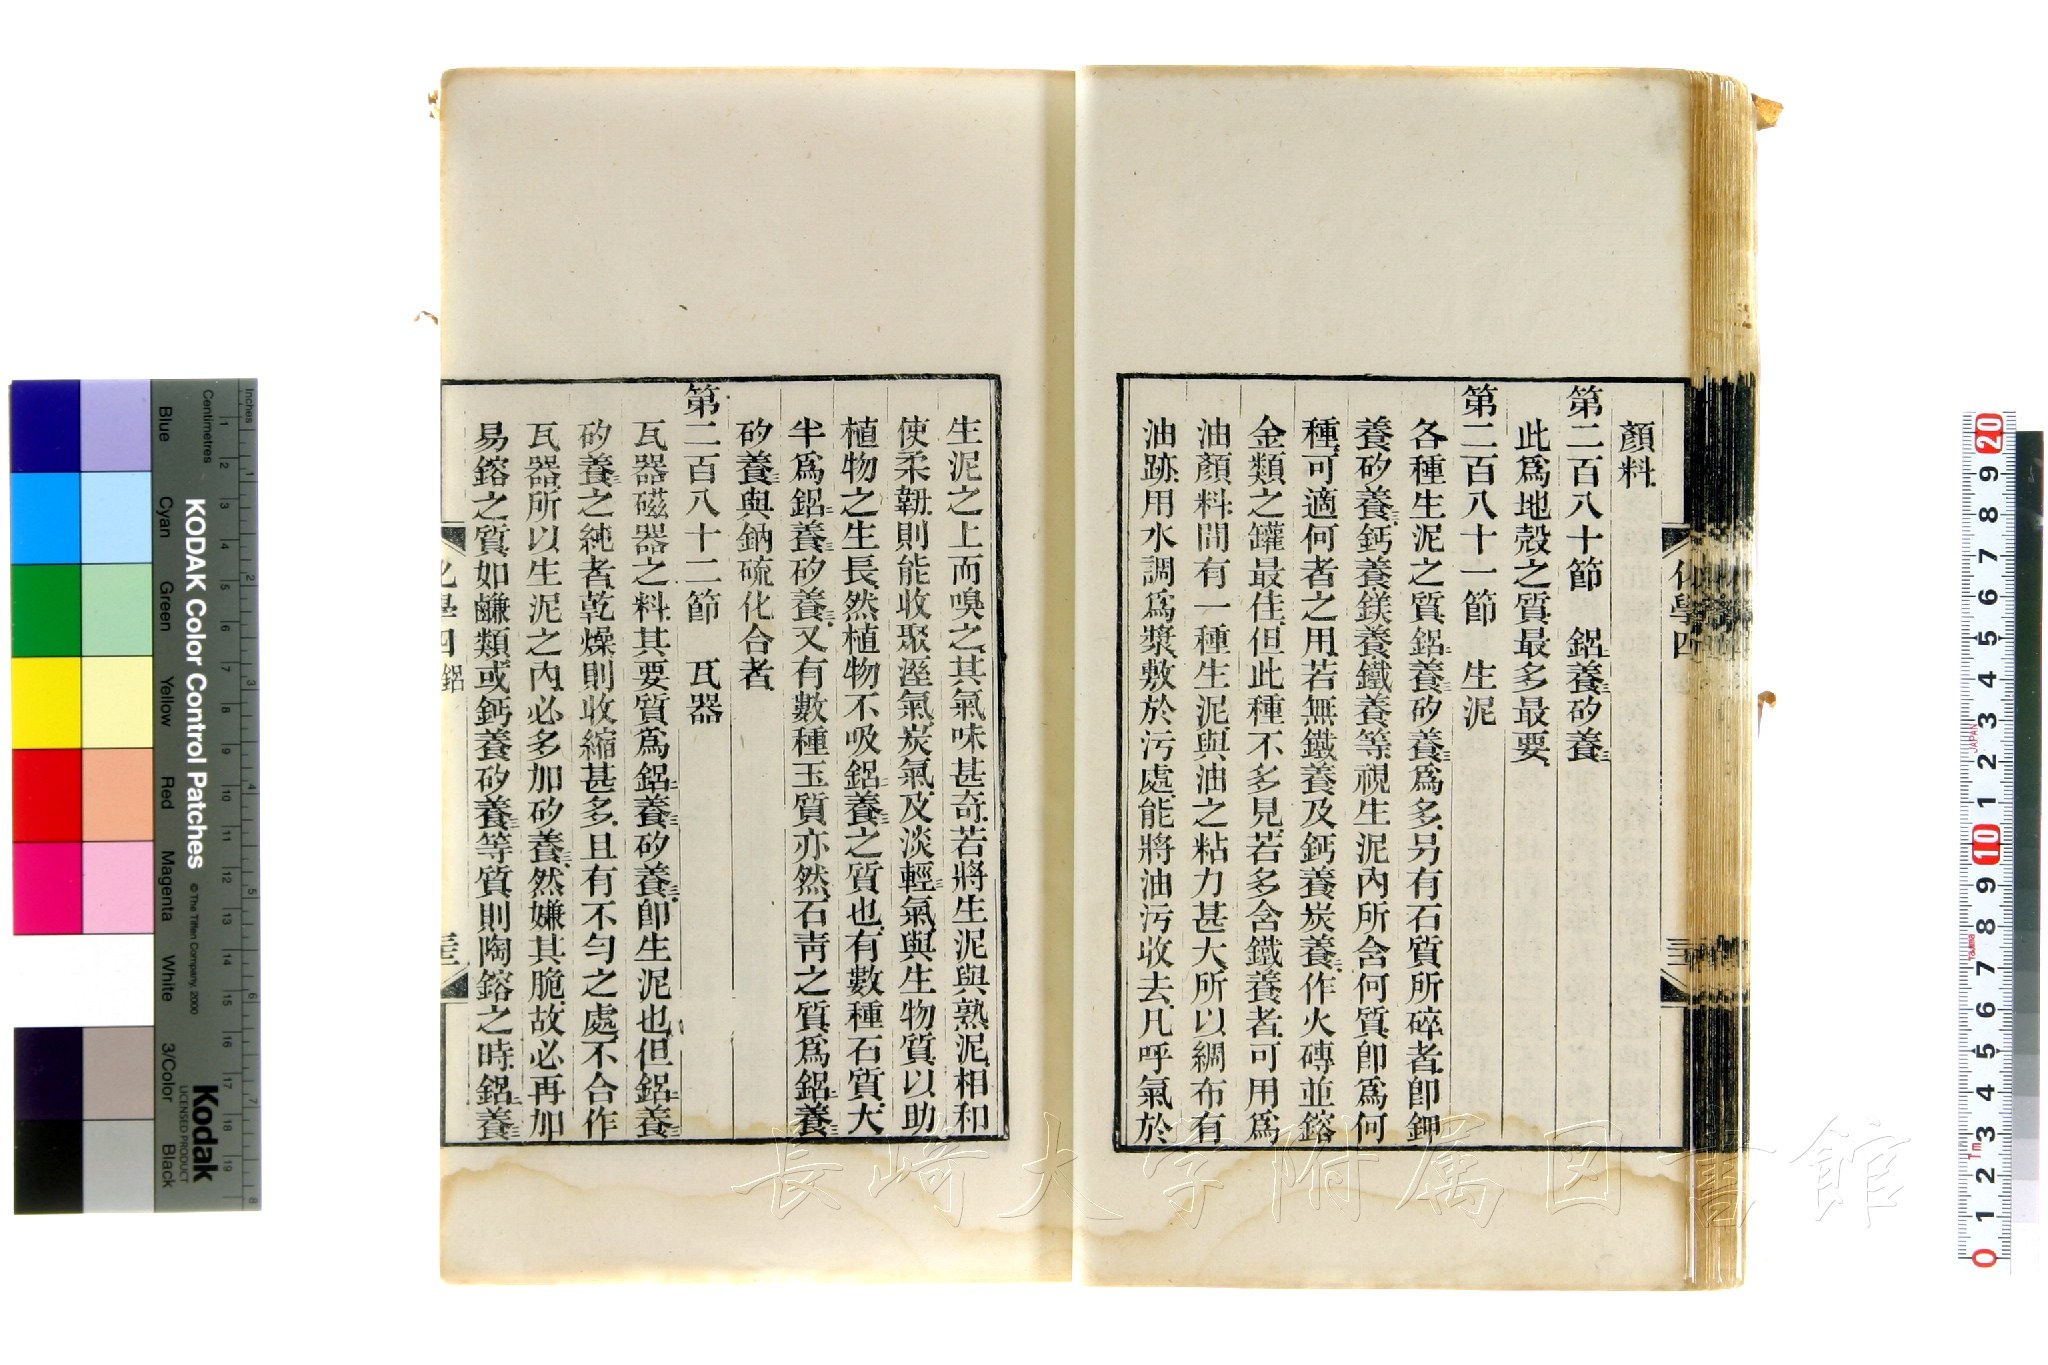 顏料
第二百八十節　鋁養三矽養三
此爲地殼之質最多最要
第二百八十一節　生泥
各種生泥之質鋁養三矽養三爲多另有石質所碎者卽鉀
養矽養三鈣養鎂養鐵養等視生泥內所含何質卽爲何
種可適何者之用若無鐵養及鈣養炭養二作火磚並鎔
金類之罐最佳但此種不多見若多含鐵養者可用爲
油顏料間有一種生泥與油之粘力甚大所以綢布有
油跡用水調爲漿敷於污處能將油污收去凡呼氣於
化學四
三
生泥之上而嗅之其氣味甚奇若將生泥與熟泥相和
使柔韌則能收聚溼氣炭氣及淡輕三氣與生物質以助
植物之生長然植物不吸鋁二養三之質也有數種石質大
半爲鋁二養三矽養三又有數種玉質亦然石靑之質爲鋁二養三
矽養三與鈉硫化合者
第二百八十二節　瓦器
瓦器磁器之料其要質爲鋁二養三矽養三卽生泥也但鋁二養三
矽養三之純者乾燥則收縮甚多且有不勻之處不合作
瓦器所以生泥之內必多加矽養三然嫌其脆故必再加
易鎔之質如鹻類或鈣養矽養三等質則陶鎔之時鋁二養三
化學四 鋁
Blue
Cyan
Green
Yellow
Red
Magenta
White
3/Color
Black
KODAK Color Control Patches
© The Tiffen Company, 2000
Kodak
LICENSED PRODUCT
Inches
Centimetres
JAPAN
長崎大学附属図書館